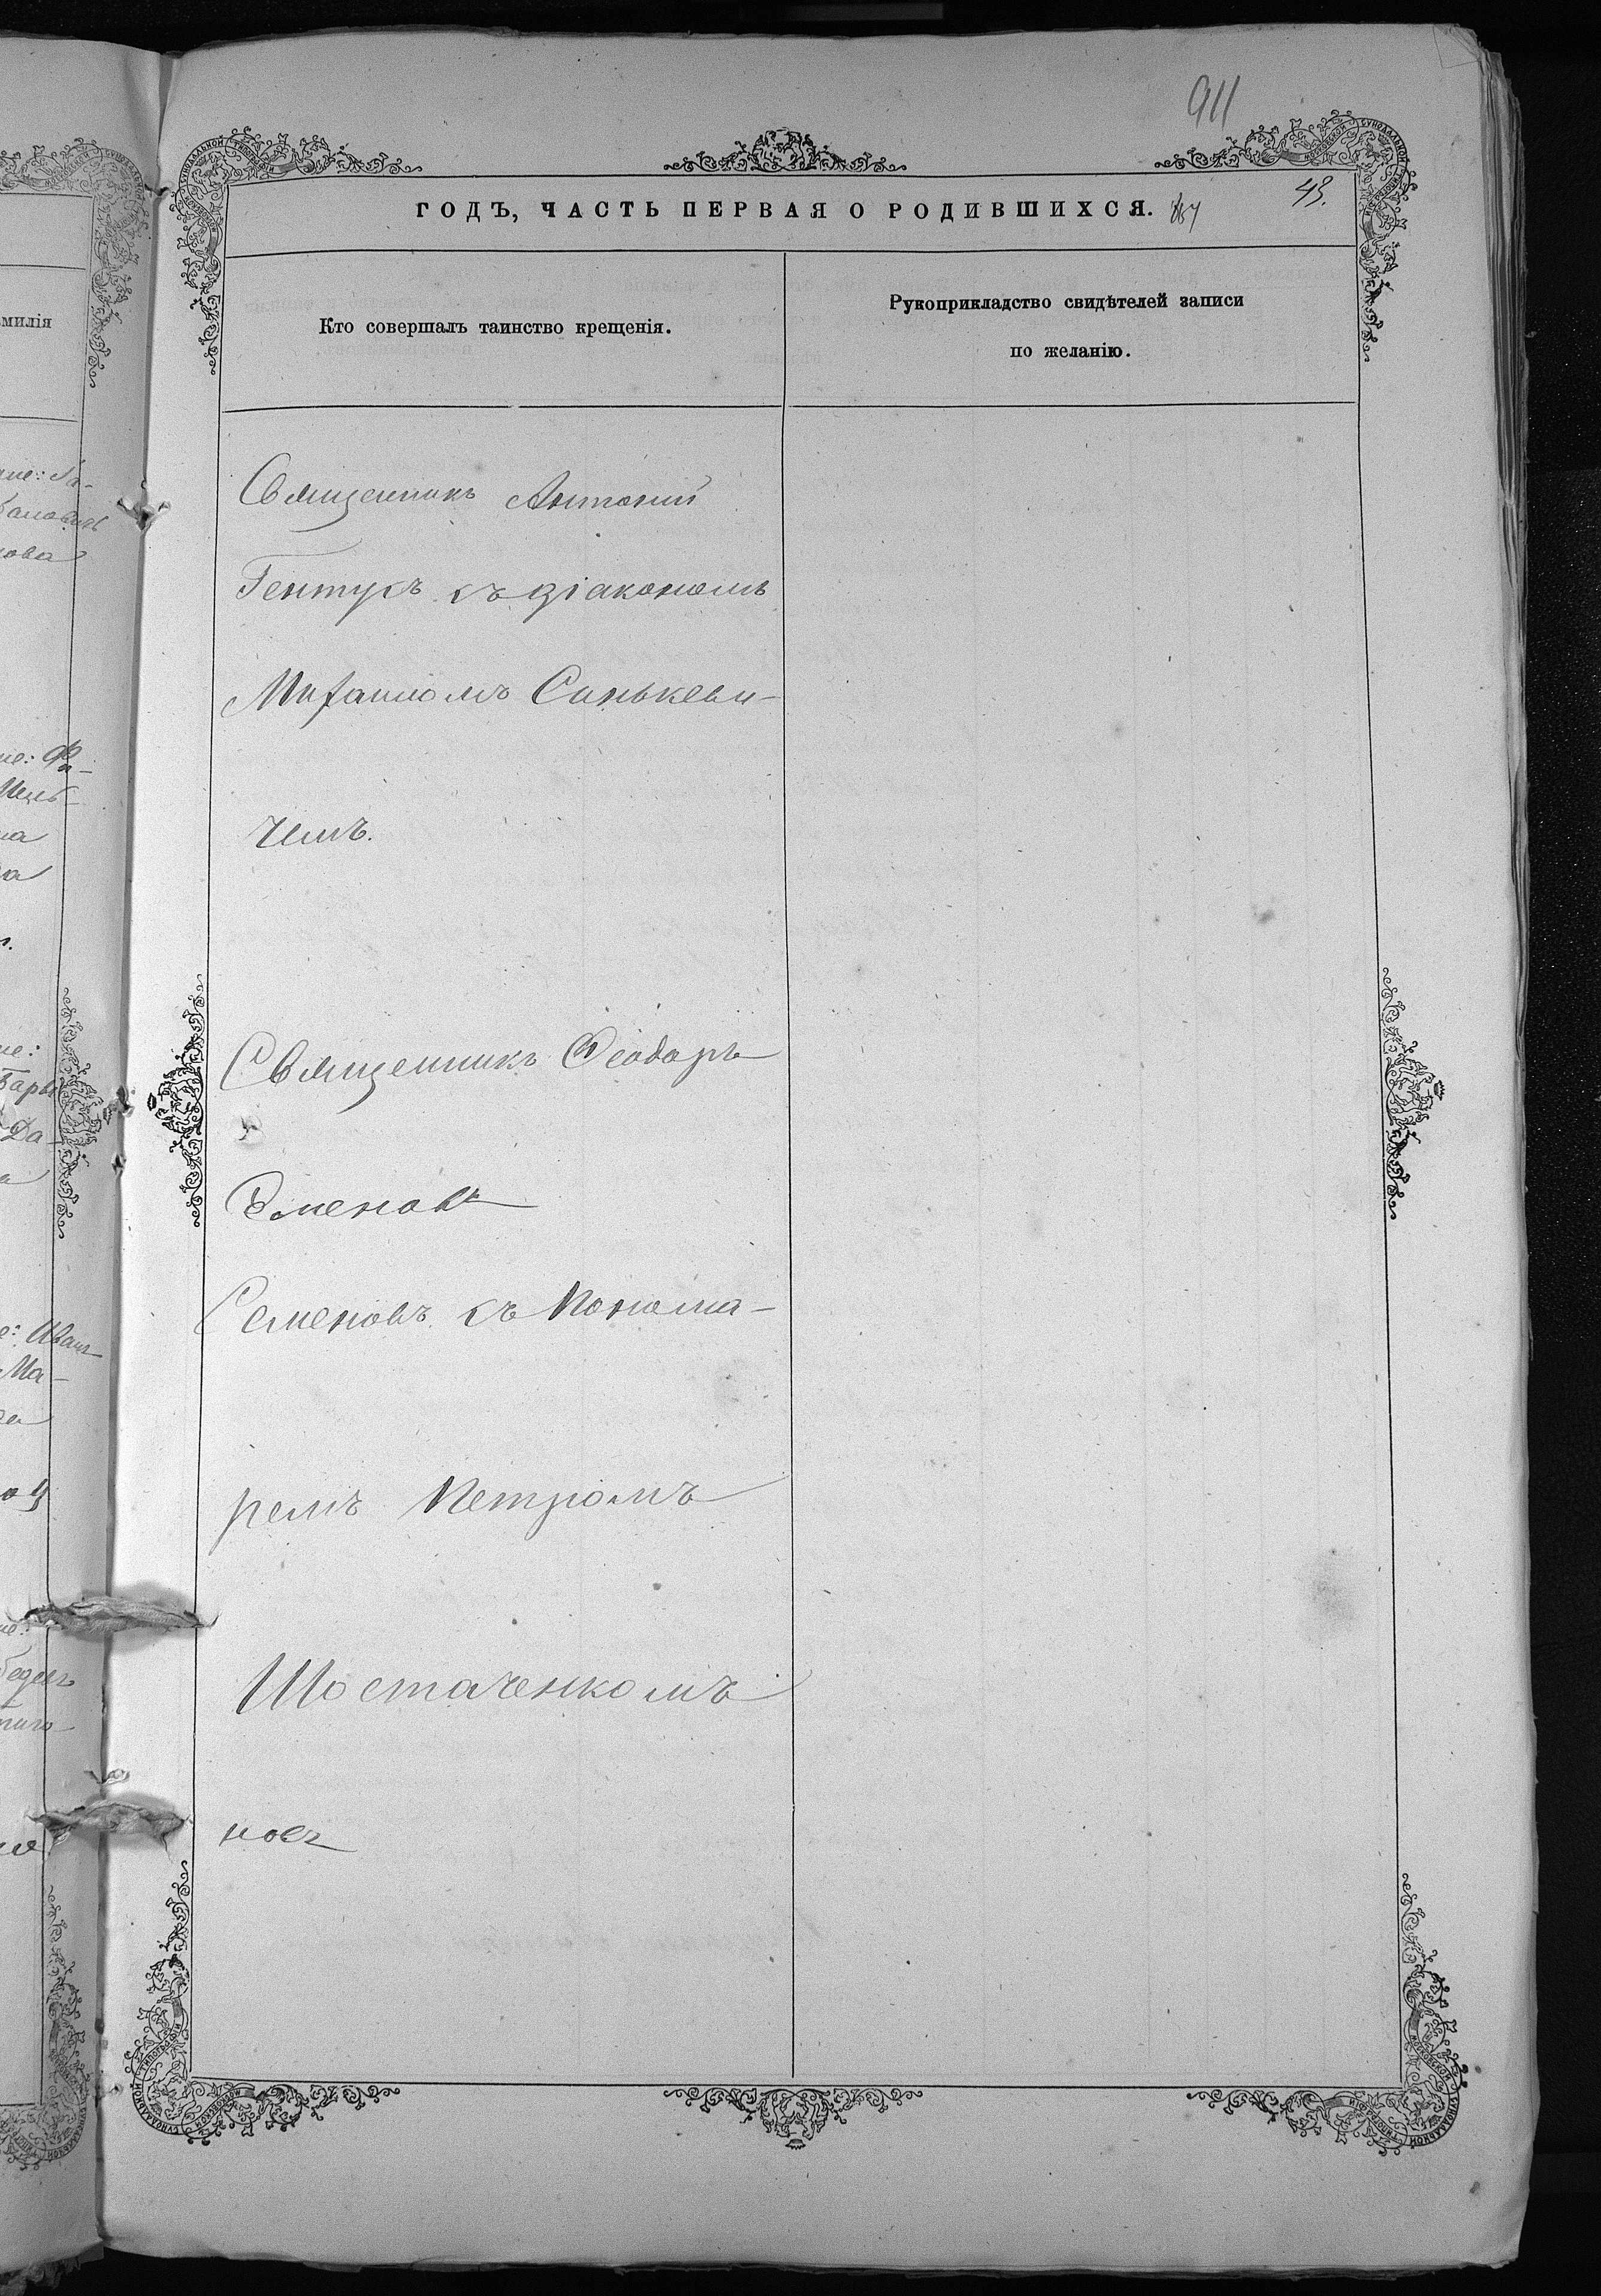 911
ГОДЪ, ЧАСТЬ ПЕРВАЯ О РОДИВШИХСЯ.
43.
Кто совершалъ таинство крещенія.
Рукоприкладство свидѣтелей записи
по желанію.
Священникъ Антоній
Гентукъ съ діакономъ
Михаиломъ Синькеви-
чемъ.
Священникъ Ѳеодоръ
Семеновъ съ Понома-
ремъ Петромъ
Шостаченкомъ
милія
нова
Да-
е: Иванъ
Ма-